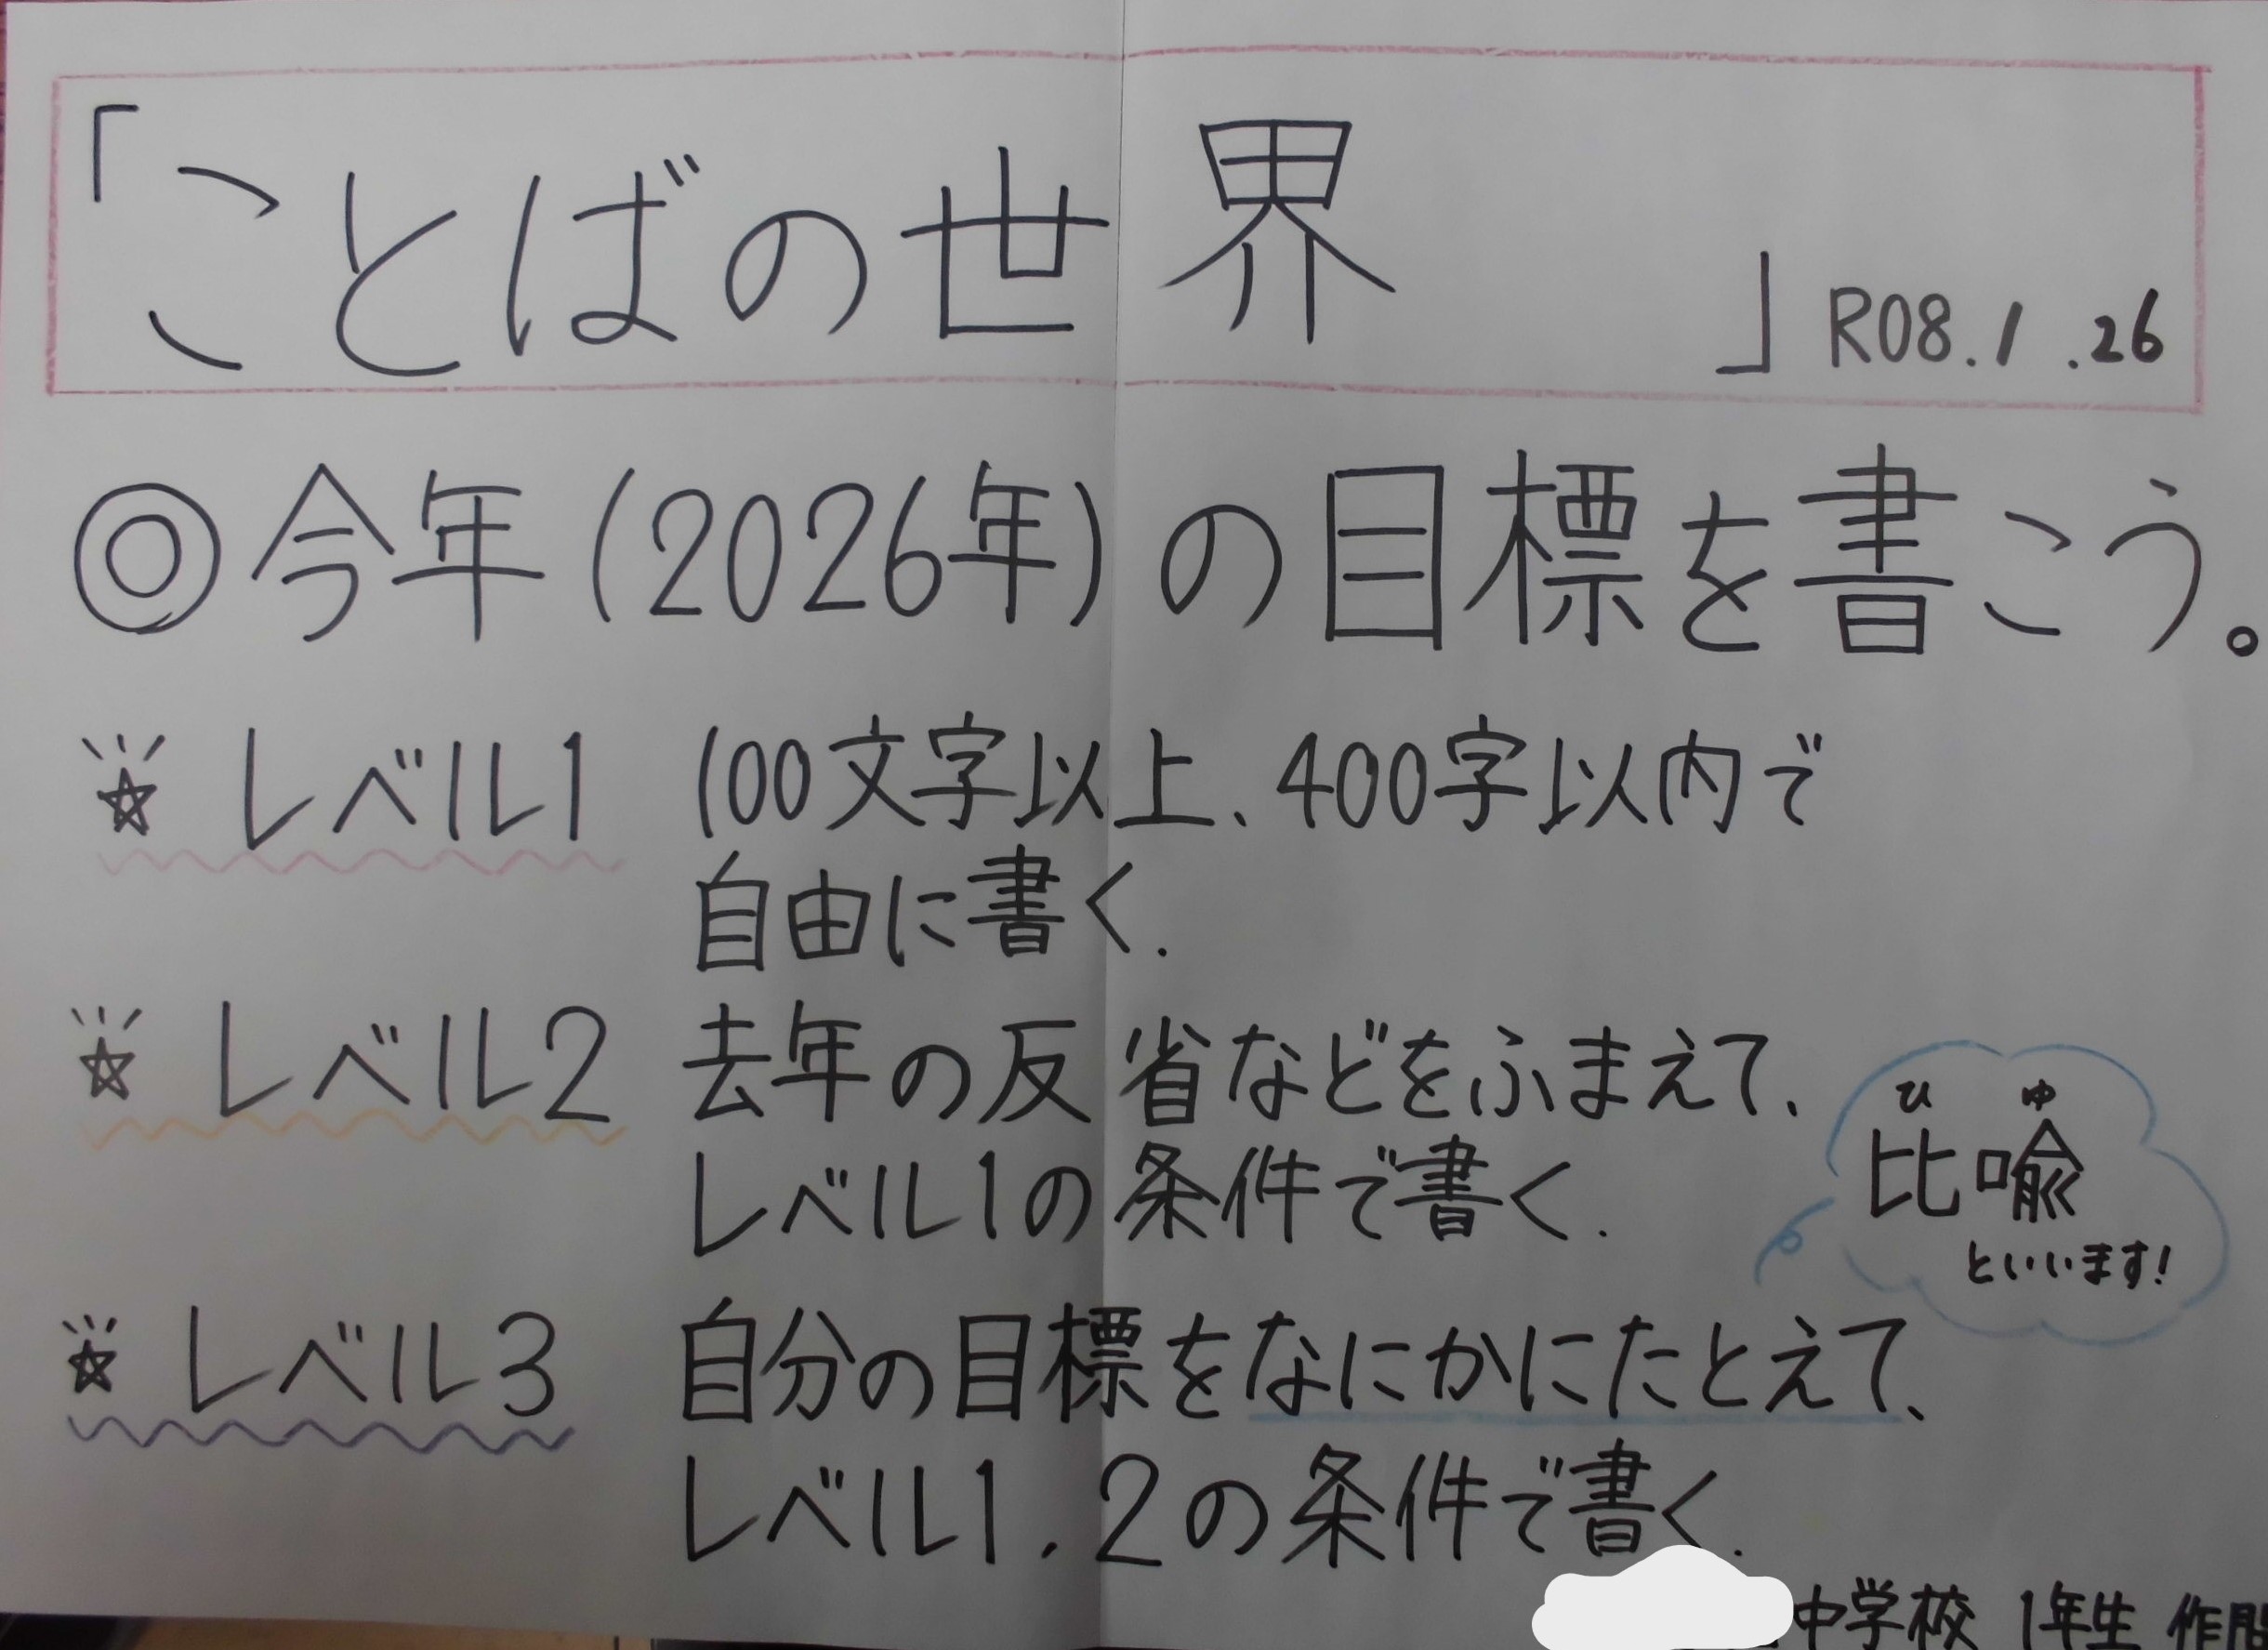 「ことばの世界 」R08.1.26
◎今年(2026年)の目標を書こう。
☆ レベル1 100文字以上、400字以内で
自由に書く.
☆ レベル2 去年の反省などをふまえて、
レベル1の条件で書く.
ひゆ
比喩
といいます!
☆ レベル3 自分の目標をなにかにたとえて、
レベル1.2の条件で書く.
中学校 1年生 作